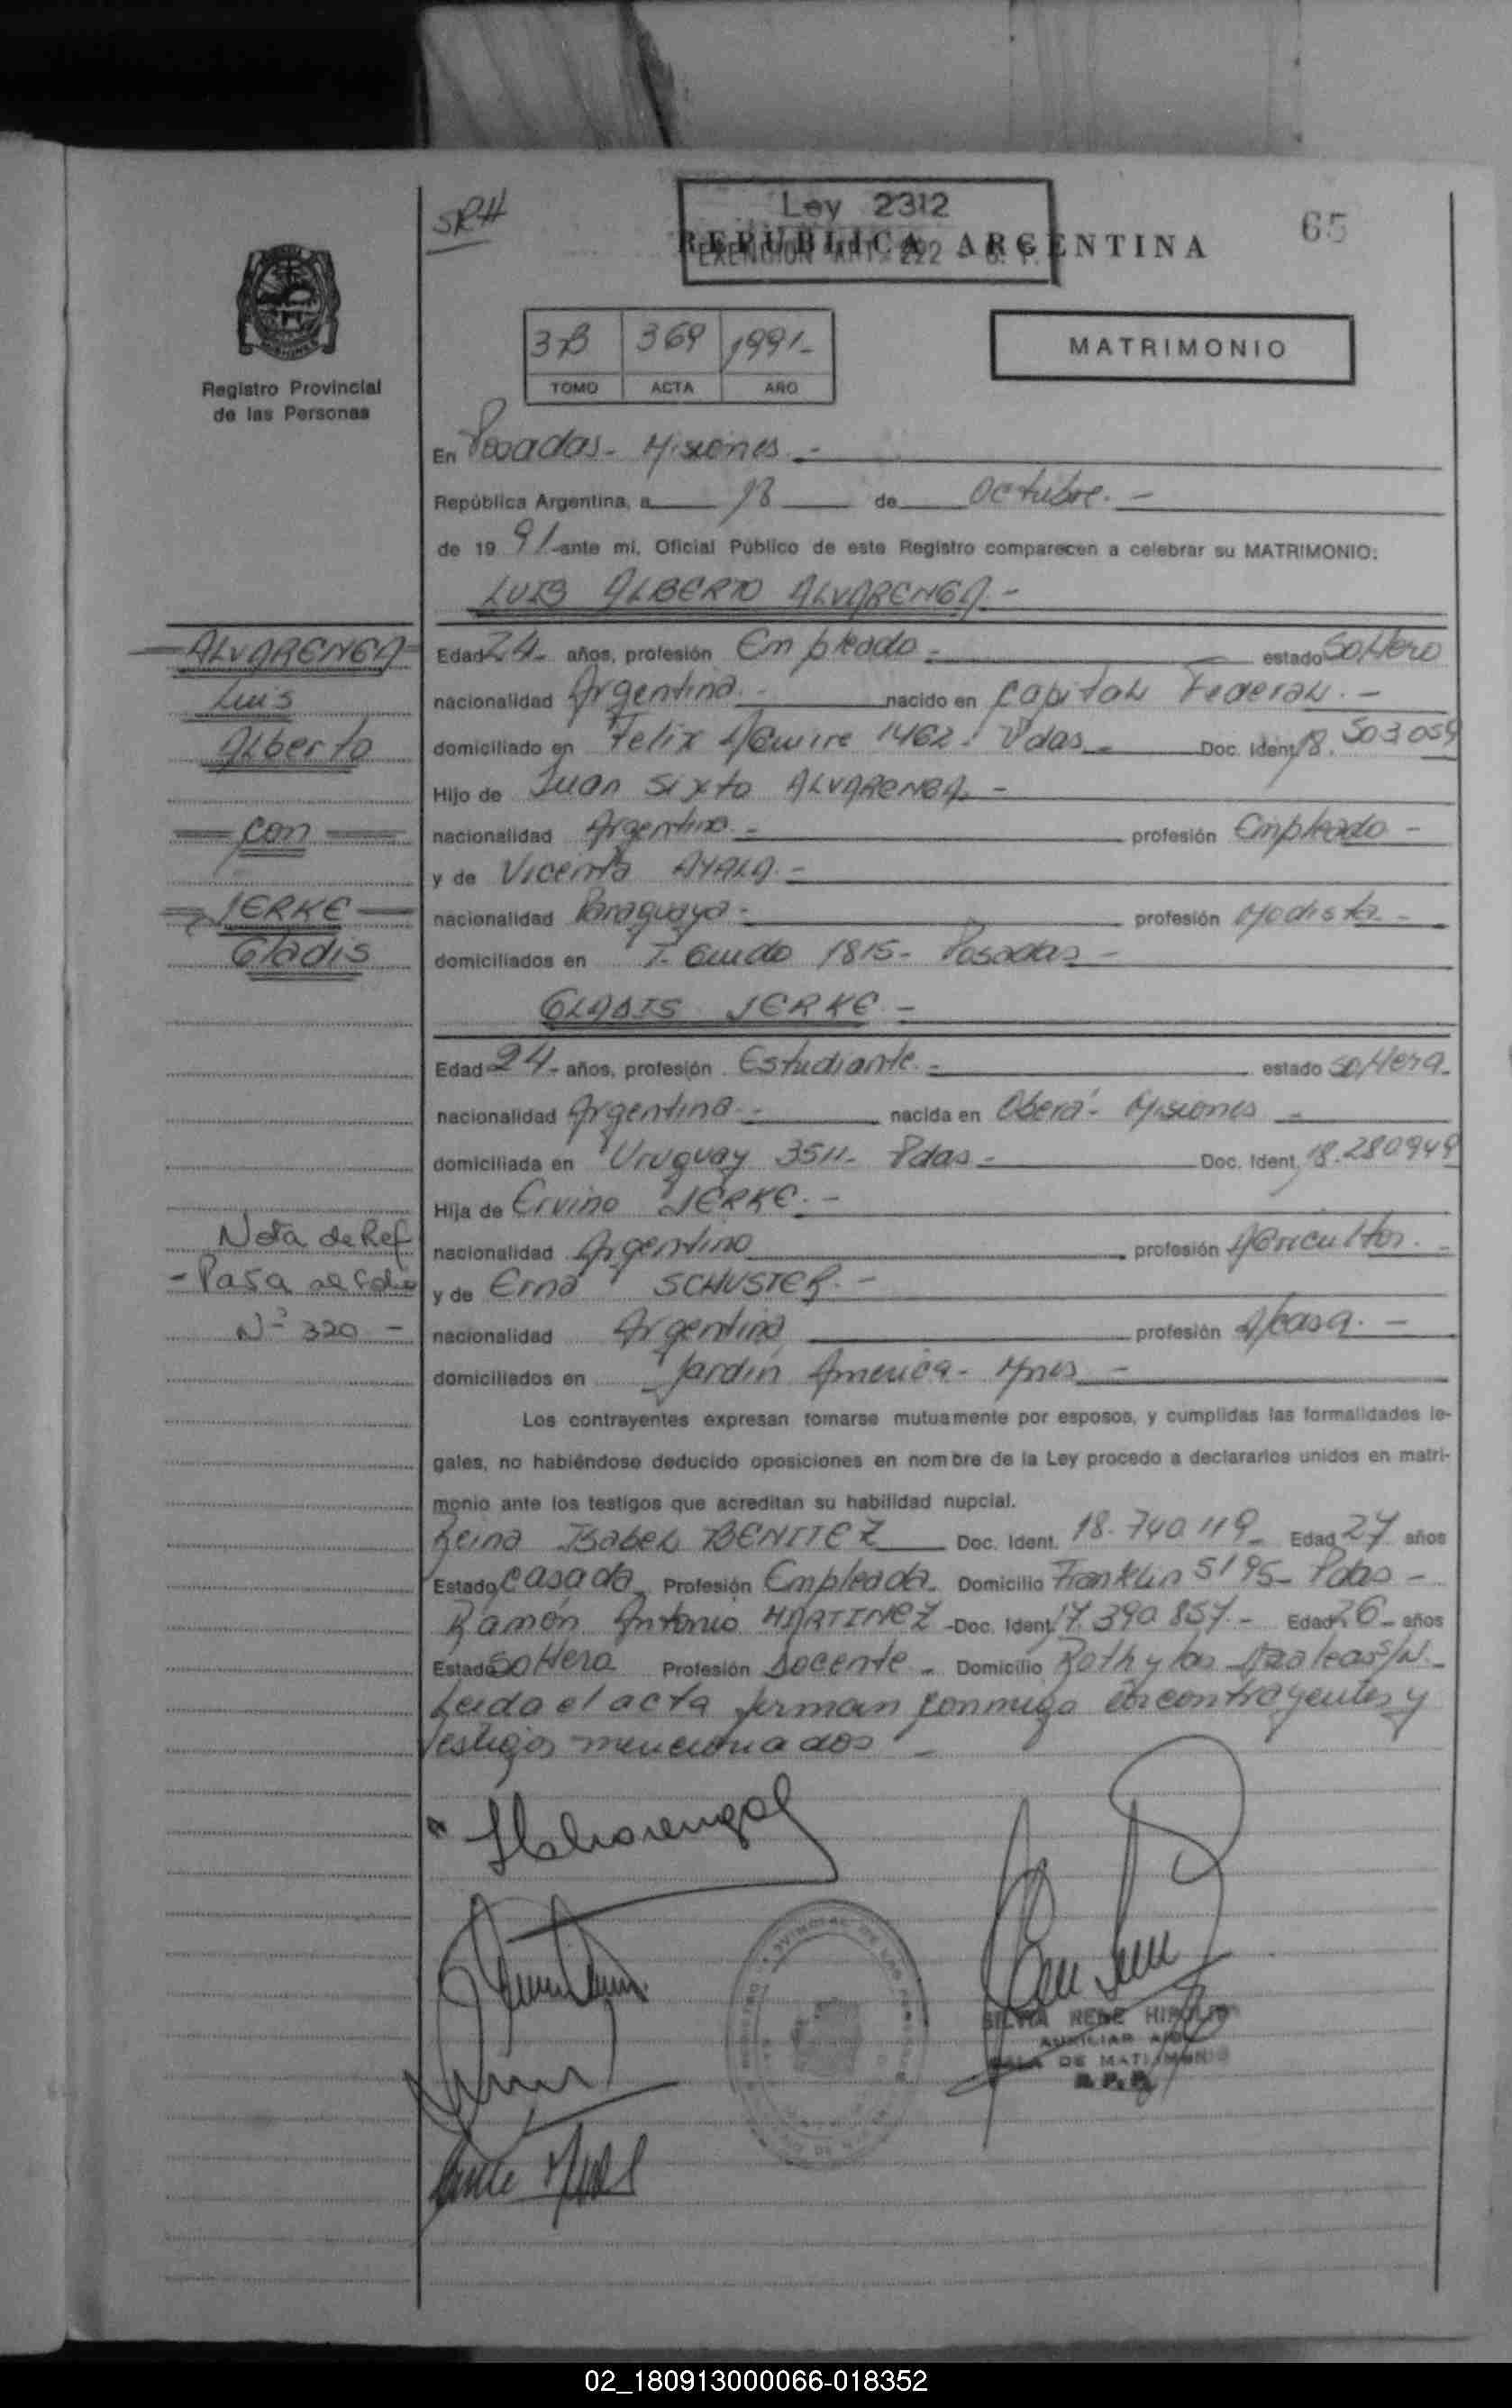 SRH
Ley 2312
REPUBLICA ARGENTINA
EXENCION ART. 222
65
Registro Provincial
de las Personas
369 1991-
TOMO ACTA AÑO
MATRIMONIO
En Posadas- Misiones.-
República Argentina, a 18 de Octubre.-
de 19 91 ante mi, Oficial Público de este Registro comparecen a celebrar su MATRIMONIO:
LUIS ALBERTO ALVARENGA.-
ALVARENGA
Luis
Alberto
con
JERKE
Gladis
Edad 24- años, profesión Empleado.- estado Soltero
nacionalidad Argentina.- nacido en Capital Federal.-
domiciliado en Felix Aguirre 1462. Pdas.- Doc. Ident. 18.503.059
Hijo de Juan Sixto ALVARENGA.-
nacionalidad Argentino.- profesión Empleado-
y de Vicenta AYALA.-
nacionalidad Paraguaya- profesión Modista-
domiciliados en T. Guido 1815- Posadas-
GLADIS JERKE.-
Edad 24- años, profesión Estudiante.- estado Soltera-
nacionalidad Argentina.- nacida en Oberá- Misiones-
domiciliada en Uruguay 3511- Pdas- Doc. Ident. 18.280949
Hija de Ervino JERKE.-
nacionalidad Argentino profesión Agricultor.-
y de Erna SCHUSTER.-
nacionalidad Argentina profesión A/casa.-
domiciliados en Jardín America- Mnes-
Nota de Ref
- Pasa al Folio
Nº 320 -
Los contrayentes expresan tomarse mutuamente por esposos, y cumplidas las formalidades le-
gales, no habiéndose deducido oposiciones en nombre de la Ley procedo a declararlos unidos en matri-
monio ante los testigos que acreditan su habilidad nupcial.
Reina Isabel BENITEZ Doc. Ident. 18.740.119- Edad 27 años
Estado Casada Profesión Empleada Domicilio Franklin 5195- Pdas-
Ramón Antonio MARTINEZ Doc. Ident. 17.390.857.- Edad 26- años
Estado Soltero Profesión Docente- Domicilio Roth y las Azaleas S/N.-
Leida el acta firman conmigo los contrayentes y
testigos mencionados-
SILVIA RENE
AUXILIAR
SALA DE MATRIMONIO
R.P.P.
02_180913000066-018352